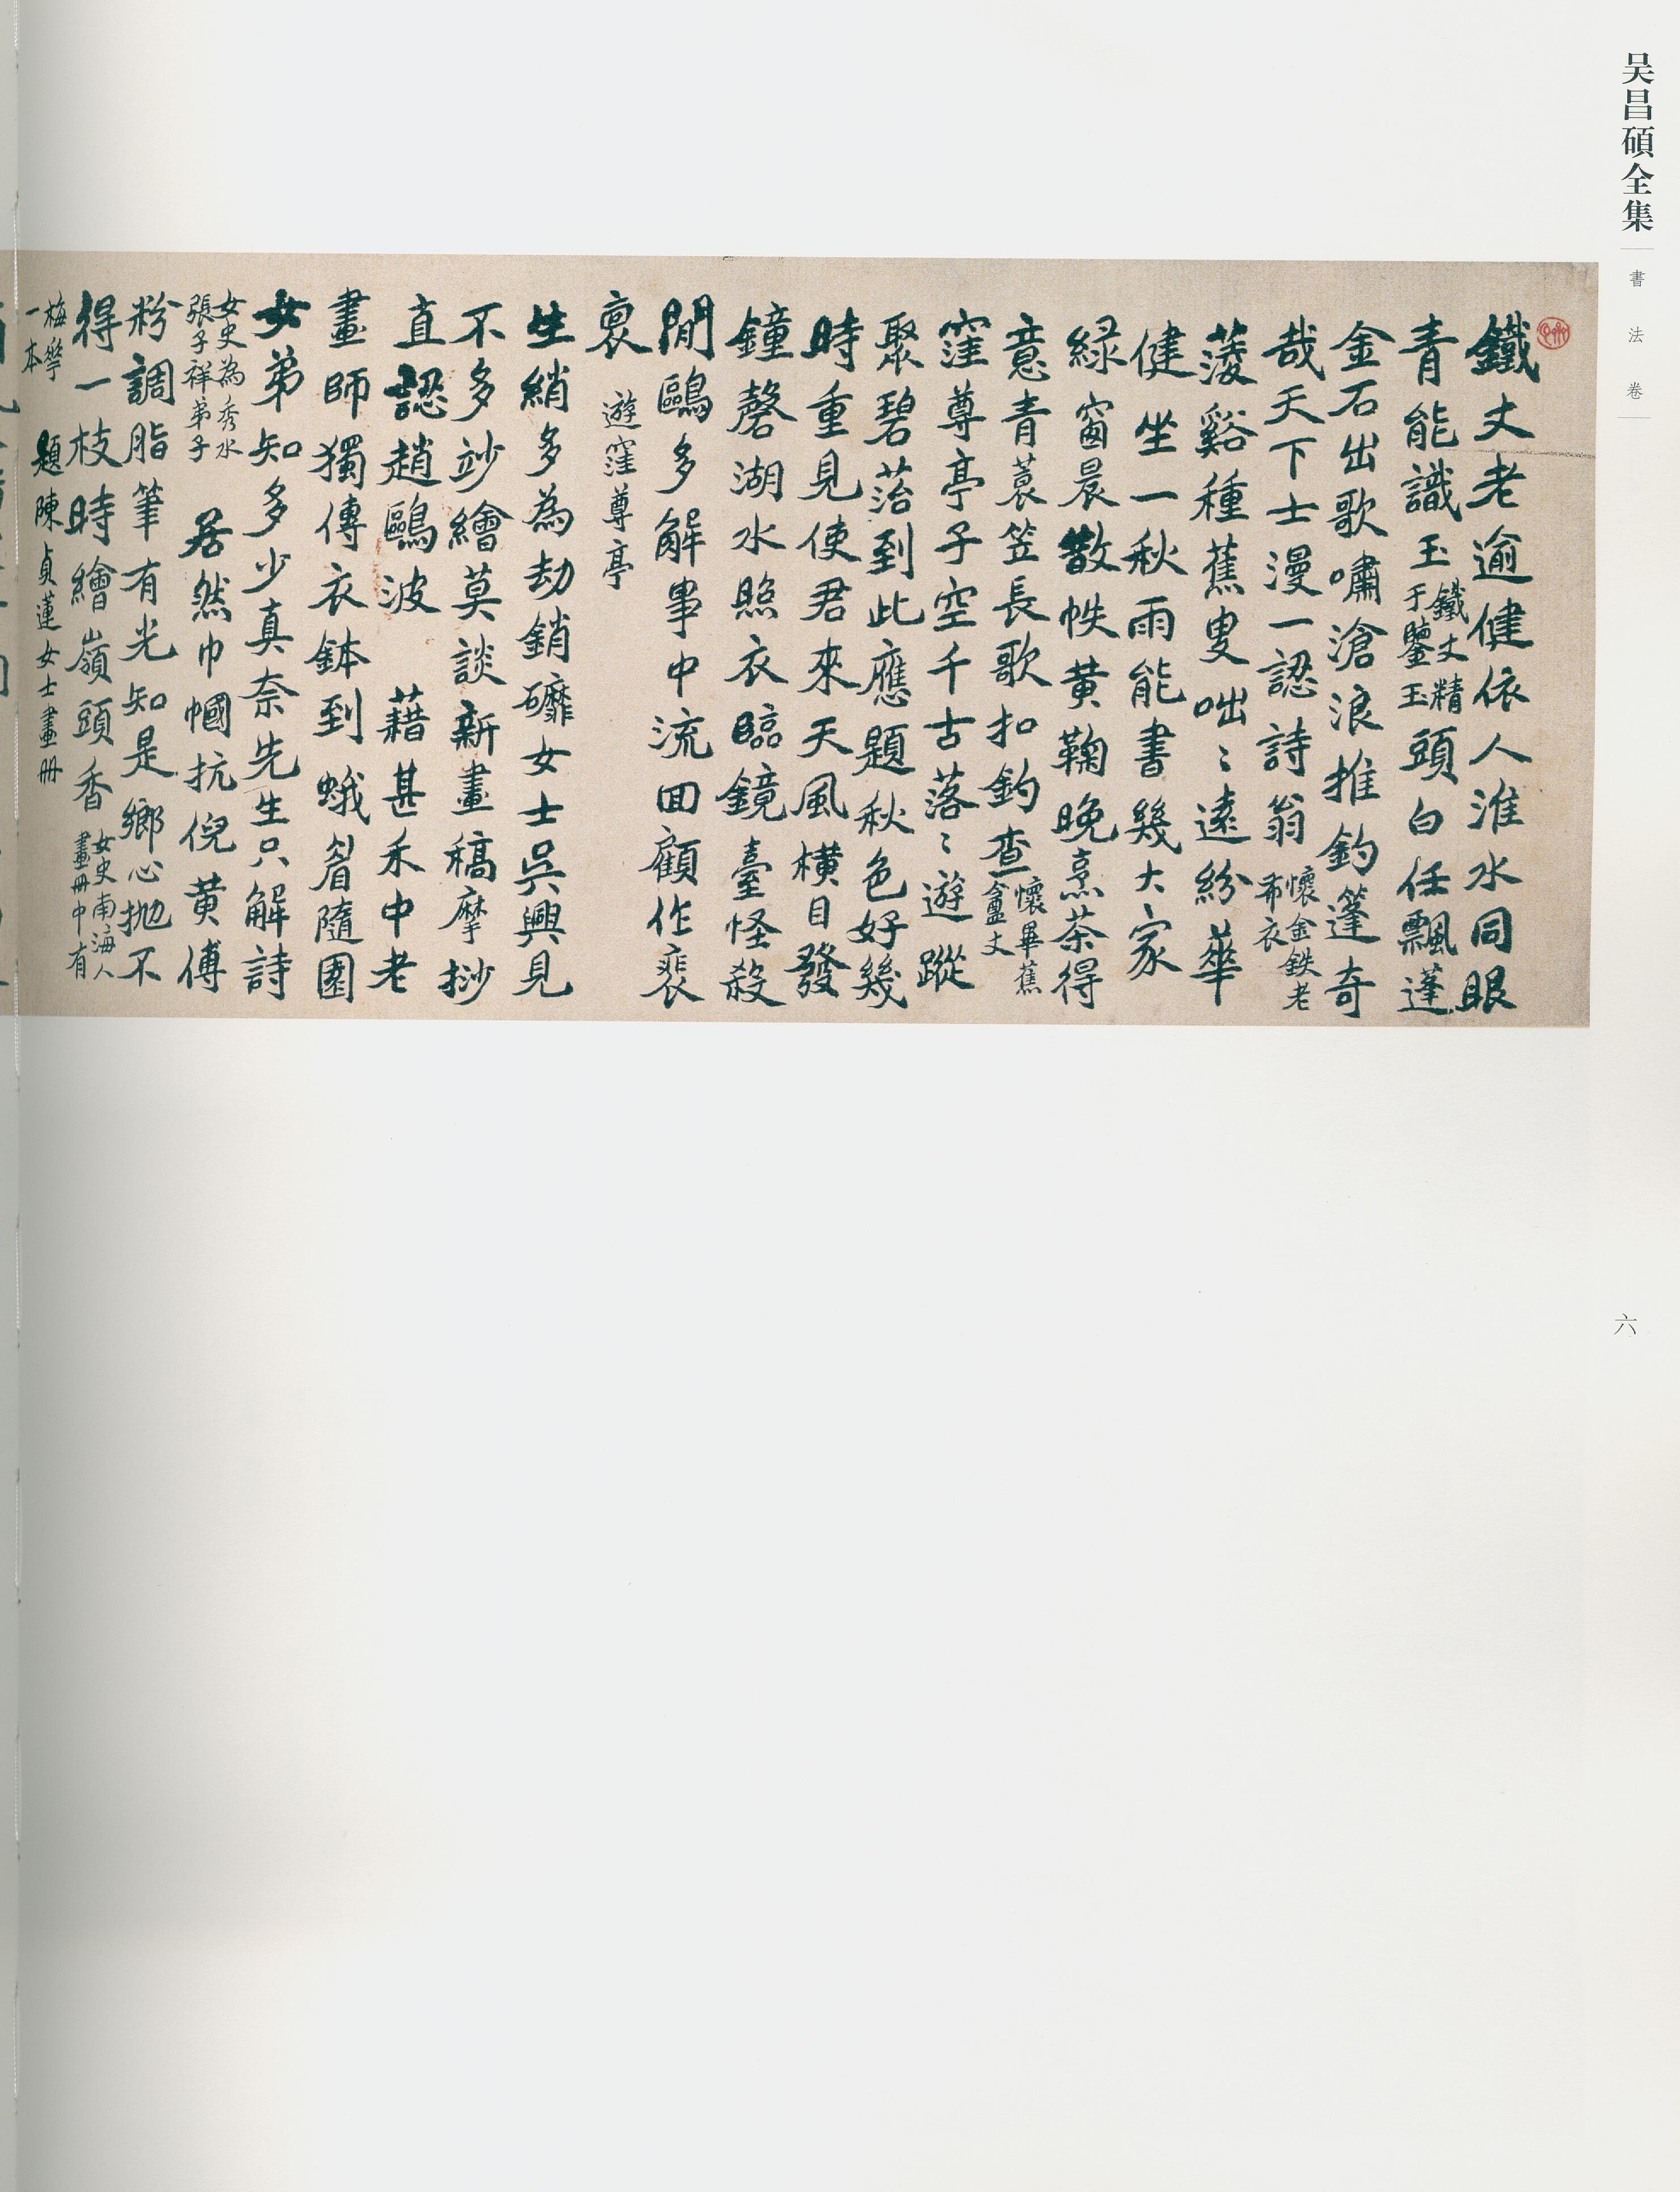 吴昌碩全集
書法卷
六
鐵丈老逾健依人淮水同眼
青能識玉鐵丈精于鑒玉頭白任飄蓬
金石出歌嘯滄浪推釣篷奇
哉天下士漫一認詩翁懷金鉄老布衣
蓤谿種蕉叟咄〻遠紛華
健坐一秋雨能書幾大家
緑窗晨散帙黄鞠晚烹茶得
意青蓑笠長歌扣釣查懷畢蕉盦丈
窪尊亭子空千古落〻遊蹤
聚碧萿到此應題秋色好幾
時重見使君來天風橫目發
鐘磬湖水照衣臨鏡臺怪殺
閒鷗多解事中流回顧作裴
裵遊窪尊亭
生綃多為劫銷磨女士吳興見
不多竗繪莫談新畫稿摩挱
直認趙鷗波藉甚禾中老
畫師獨傳衣鉢到蛾眉隨園
女弟知多少真奈先生只解詩
女史為秀水張子祥弟子居然巾幗抗倪黄傅
粉調脂筆有光知是鄉心拋不
得一枝時繪嶺頭香女史南海人畫冊中有
梅花一本題陳貞蓮女士畫冊